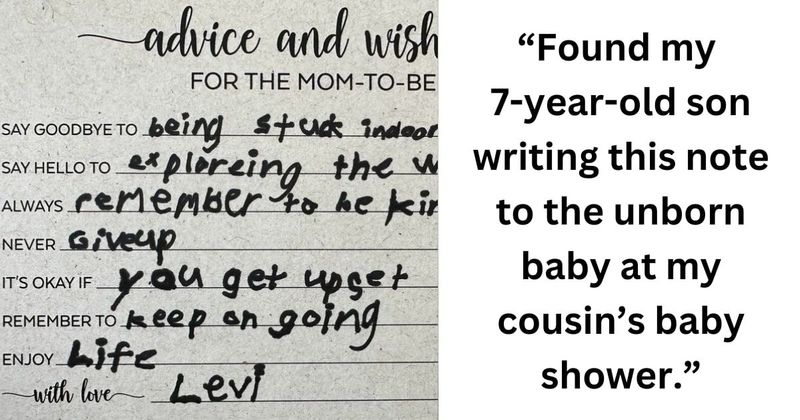 advice and wish
FOR THE MOM-TO-BE
SAY GOODBYE TO being stuck indoor
SAY HELLO TO exploreing the w
ALWAYS remember to be kin
NEVER Giveup
IT'S OKAY IF you get upset
REMEMBER TO keep on going
ENJOY Life
with love Levi
“Found my
7-year-old son
writing this note
to the unborn
baby at my
cousin’s baby
shower.”